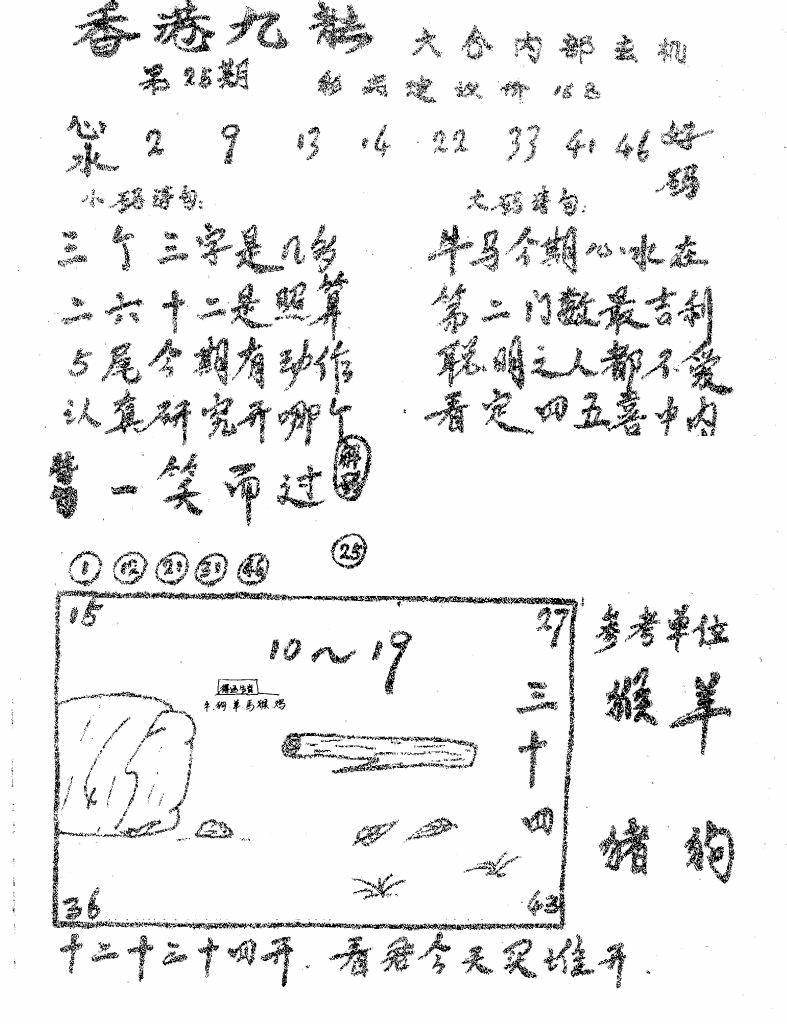 香港九龙 六合内部玄机
第25期
心水 2 9 13 14 22 33 41 46 好码
小码诗句: 大码诗句:
三个三字是几多 牛马今期心水在
二六十二是照算 第二门数最吉利
5尾今期有动作 聪明之人都不爱
认真研究开哪个 看定四五喜中内
一笑而过
1 12 21 31 46 25
15 27
10～19
三十四
牛狗羊马猴鸡
36 43
参考单位
猴 羊
猪 狗
十二十三十四开.看君今天买谁开.